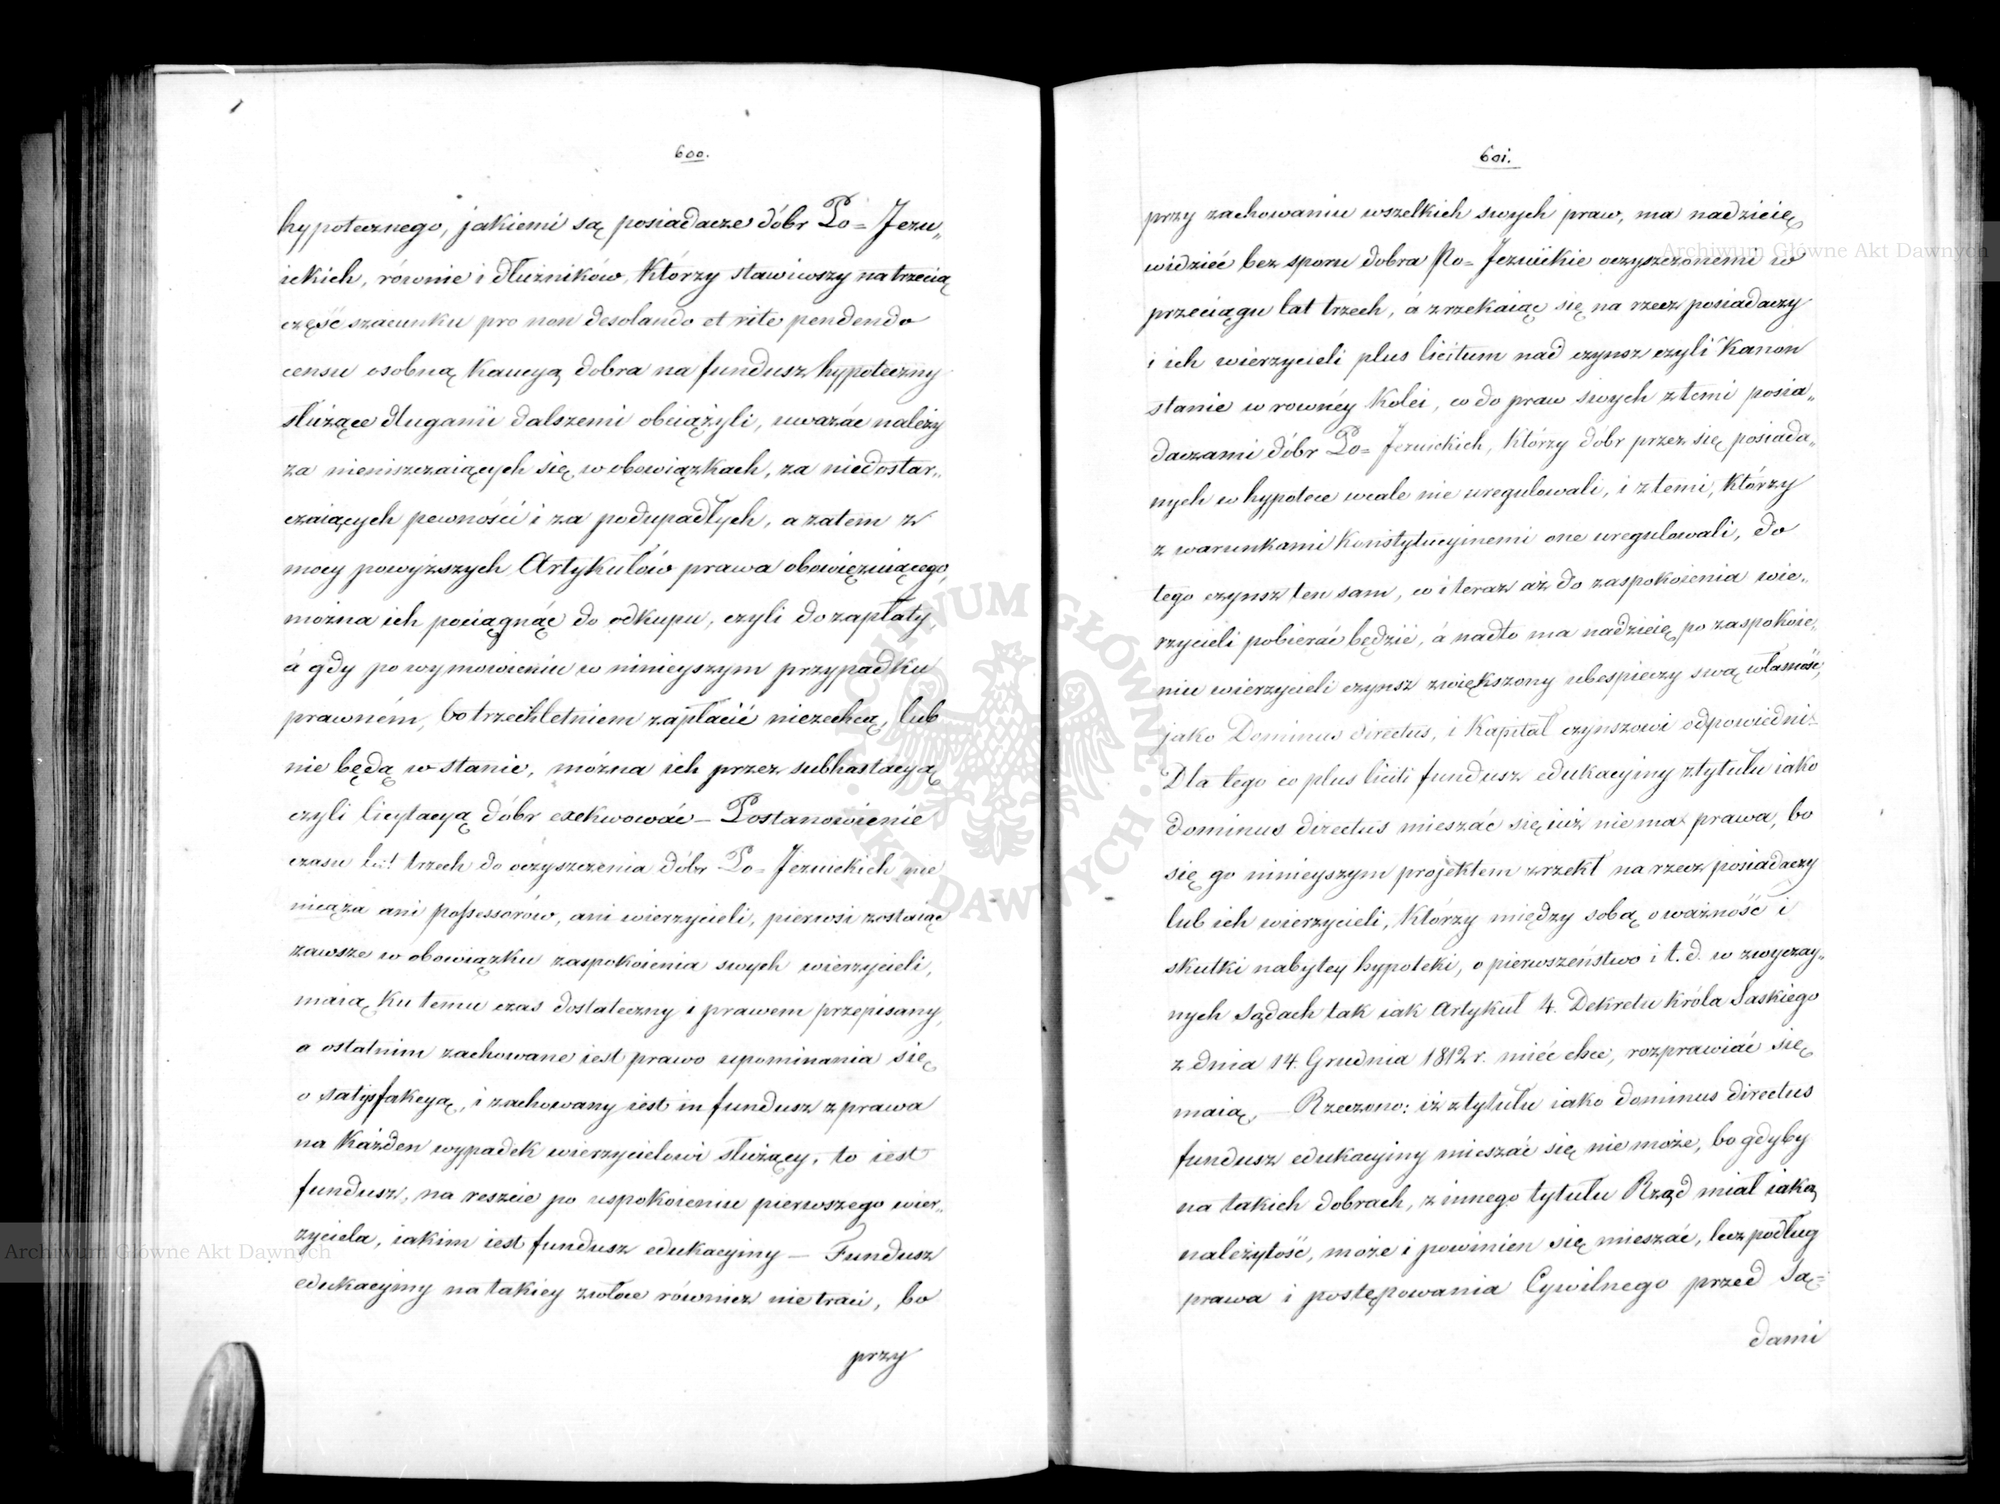 600.
hypotecznego, jakiemi są posiadacze dóbr Po=Jezu„
ickich, równie i dłużników, którzy stawiwszy na trzecią
część szacunku pro non desolando et rite pendendo
censu osobną kaucyą dobra na fundusz hypoteczny
służące długami dalszemi obciążyli, uważać należy
za nieniszczaiących się w obowiązkach, za niedostar„
czaiących pewności i za podupadłych, a zatem z
mocy powyższych Artykułów prawa obowięzuiącego,
można ich pociągnąć do odkupu, czyli do zapłaty,
á gdy po wymowieniu w ninieyszym przypadku
prawném, bo trzechletniem zapłacić niezechcą, lub
nie będą w stanie, można ich przez subhastacyą
czyli licytacyą dóbr exekwować — Postanowienie
czasu lat trzech do oczyszczenia dóbr Po=Jezuickich nie
nieąża ani possessorów, ani wierzycieli, pierwsi zostaiąc
zawsze w obowiązku zaspokoienia swych wierzycieli,
maią ku temu czas dostateczny i prawem przepisany,
a ostatnim zachowane iest prawo upominania się
o satysfakcyą, i zachowany iest in fundusz z prawa
na każden wypadek wierzycielowi służący, to iest
fundusz, na reszcie po uspokoieniu pierwszego wier„
zyciela, iakim iest fundusz edukacyiny — Fundusz
edukacyiny na takiey zwłoce również nie traci, bo
przy
601.
przy zachowaniu wszelkich swych praw, ma nadzieię
widzieć bez sporu dobra Po=Jezuickie oczyszczonemi w
przeciągu lat trzech, á zrzekaiąc się na rzecz posiadaczy
i ich wierzycieli plus licitum nad czynsz czyli Kanon
stanie w rowney kolei, co do praw swych z temi posia„
daczami dóbr Po=Jezuickich, którzy dóbr przez się posiada„
nych w hypotece wcale nie uregulowali, i z temi, którzy
z warunkami Konstytucyinemi one uregulowali, do
tego czynsz ten sam, co i teraz aż do zaspokoienia wie„
rzycieli pobierać będzie, á nadto ma nadzieię po zaspokoie„
niu wierzycieli czynsz zwiększony ubespieczy swą własność,
jako Dominus directus, i Kapitał czynszowi odpowiedni.
Dla tego co plus liciti fundusz edukacyiny z tytułu iako
dominus directus mieszać się iuż nie ma prawa, bo
się go ninieyszym projektem zrzekł na rzecz posiadaczy
lub ich wierzycieli, którzy między sobą o ważność i
skutki nabytey hypoteki, o pierwszeństwo i t.d. w zwyczay„
nych Sądach tak iak Artykuł 4. Dekretu Króla Saskiego
z dnia 14. Grudnia 1812 r. mieć chce, rozprawiać się
maią. — Rzeczono: iż z tytułu iako dominus directus
fundusz edukacyiny mieszać się nie może, bo gdyby
na takich dobrach, z innego tytułu Rząd miał iaką
należytość, może i powinien się mieszać, lecz podług
prawa i postępowania Cywilnego przed Są=
dami
Archiwum Główne Akt Dawnych
Archiwum Główne Akt Dawnych
ARCHIWUM GŁÓWNE · AKT DAWNYCH ·